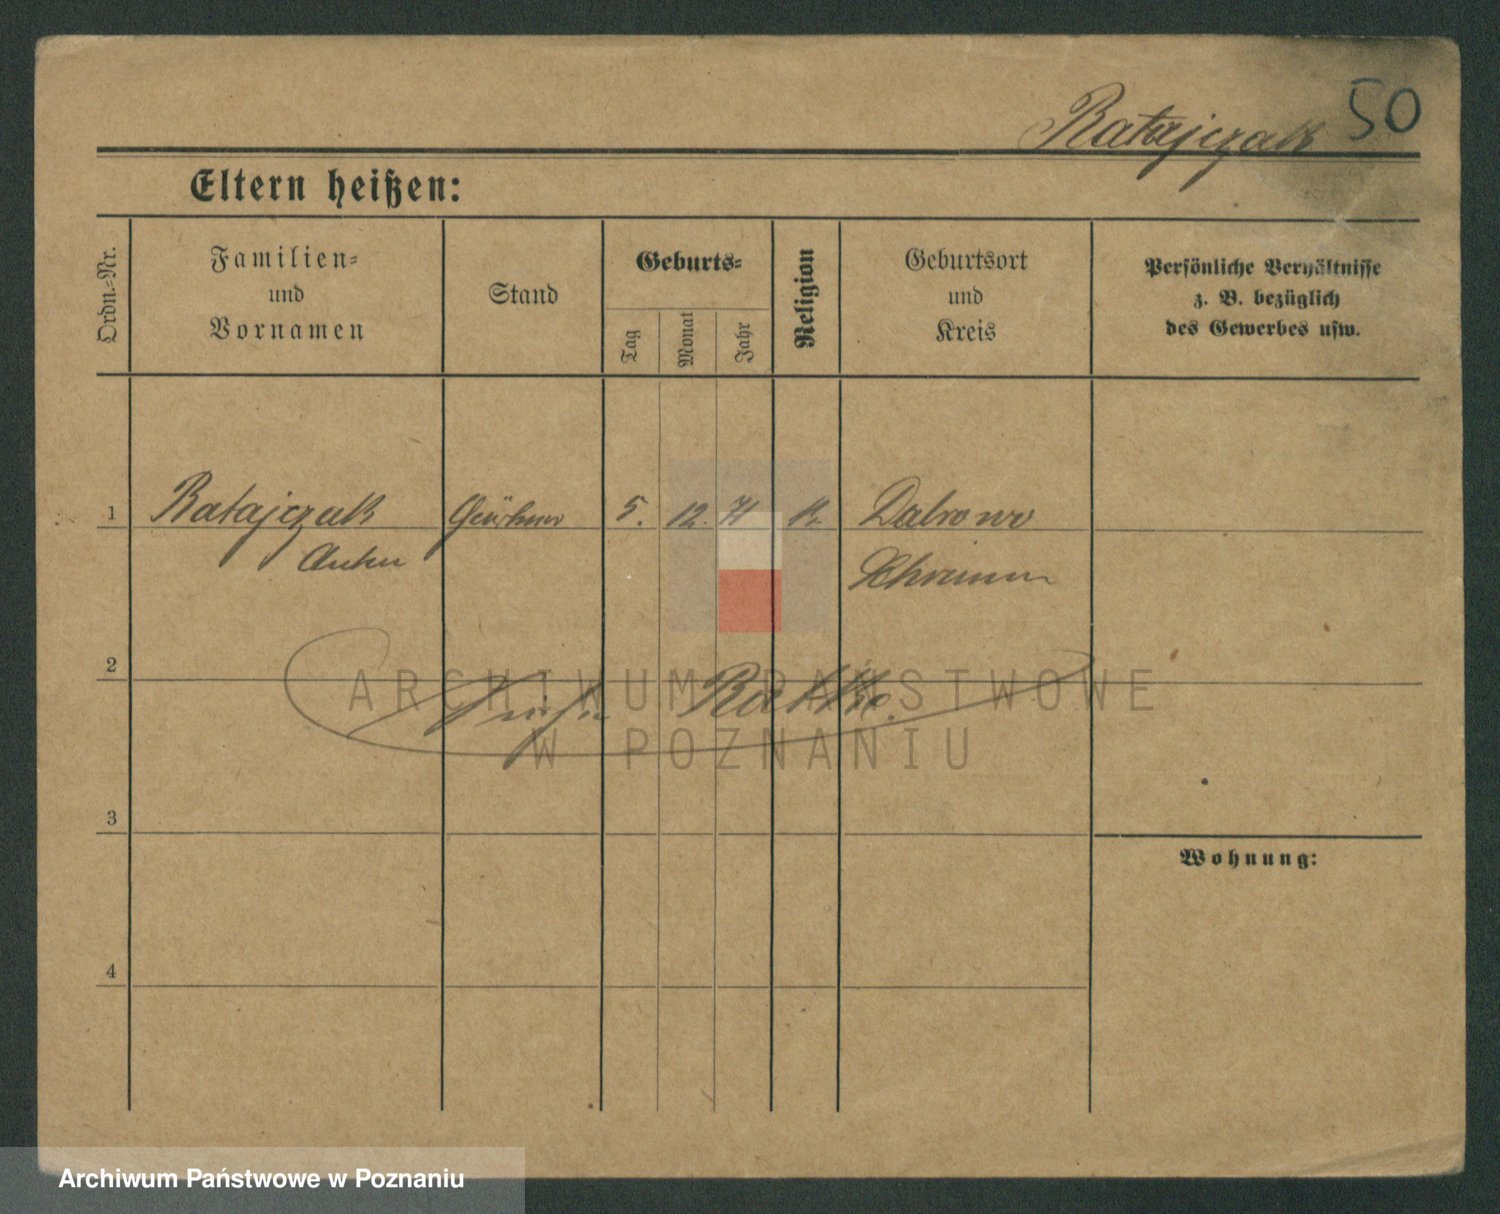 Ratajczak 50
Eltern heißen:
Ordn.-Nr.
Familien-
und
Vornamen
Stand
Geburts-
Tag
Monat
Jahr
Religion
Geburtsort
und
Kreis
Persönliche Verhältnisse
z. B. bezüglich
des Gewerbes usw.
1 Ratajczak 5. 12. 71 k. Dabrowo
Schrimm
2
ARCHIWUM PAŃSTWOWE
W POZNANIU
3
Wohnung:
4
Archiwum Państwowe w Poznaniu